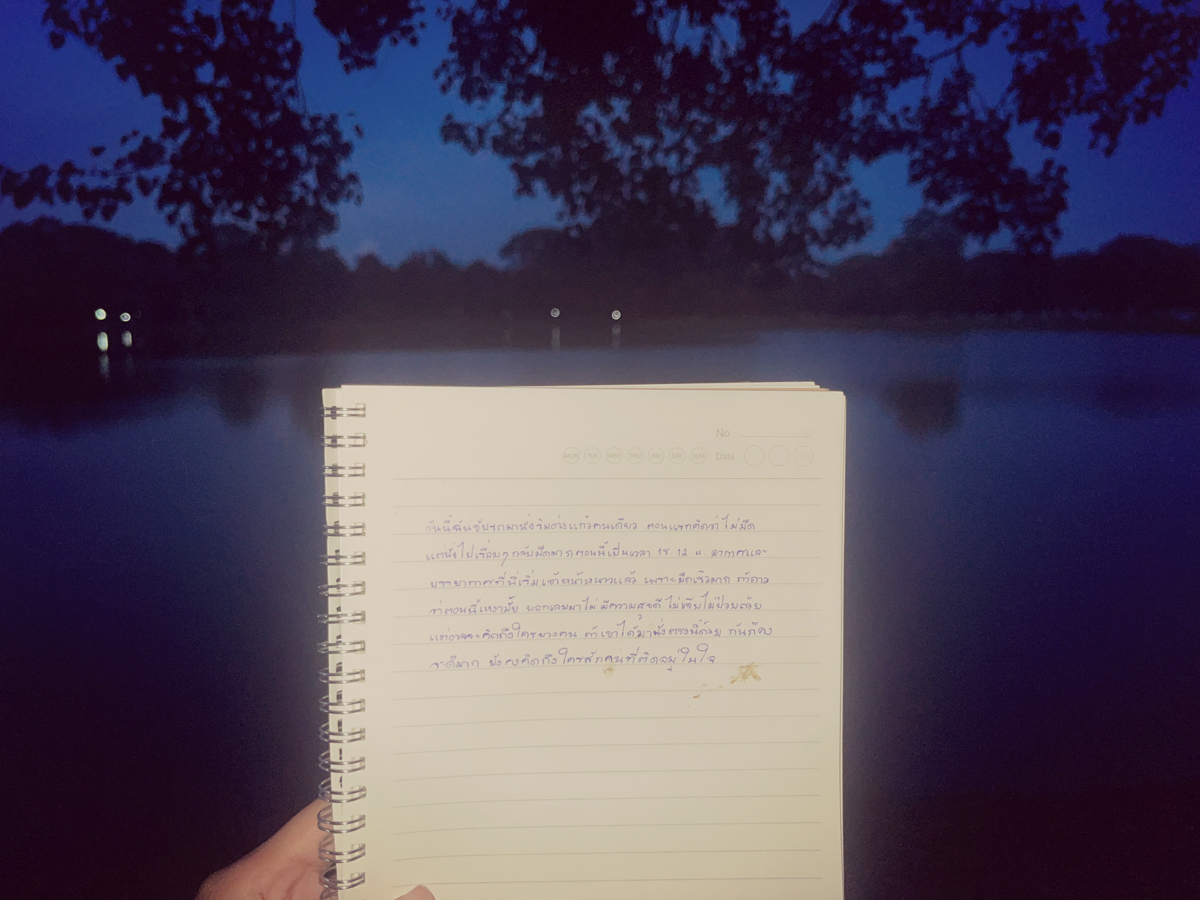 No.
MON TUE WED THU FRI SAT SUN Date
วันนี้ฉันขับรถมานั่งริมอ่างแก้วคนเดียว ตอนแรกคิดว่าไม่มืด
แต่นั่งไปเรื่อยๆกลับมืดมากตอนนี้เป็นเวลา 18.12 น. อากาศและ
บรรยากาศที่นี่เริ่มเข้าหน้าหนาวแล้ว เพราะมืดเร็วมาก ถ้าถาม
ว่าตอนนี้เหงามั้ย บอกเลยว่าไม่ มีความสุขดี ไม่เจ็บไม่ป่วยด้วย
แต่อาจจะคิดถึงใครบางคน ถ้าเขาได้มานั่งตรงนี้ด้วย กันก็คง
จะดีมาก ยังคงคิดถึงใครสักคนที่ติดอยู่ในใจ